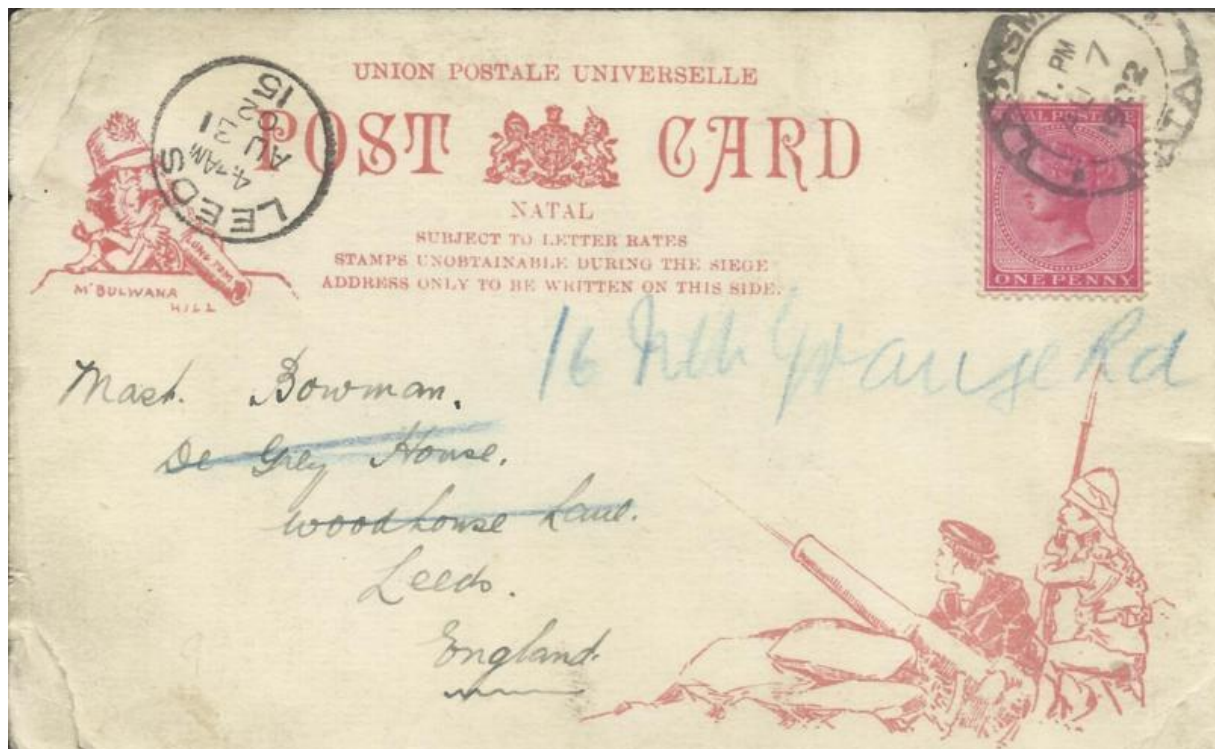 UNION POSTALE UNIVERSELLE
POST CARD
NATAL
SUBJECT TO LETTER RATES
STAMPS UNOBTAINABLE DURING THE SIEGE
ADDRESS ONLY TO BE WRITTEN ON THIS SIDE.
LEEDS
4-7AM
AU 31
02
15
LONG TOM
M'BULWANA
HILL
PM
7
1902
NATAL
POSTAGE
ONE PENNY
16 Nth Grange Rd
Mast. Bowman.
De Grey House.
Woodhouse Lane.
Leeds.
England.